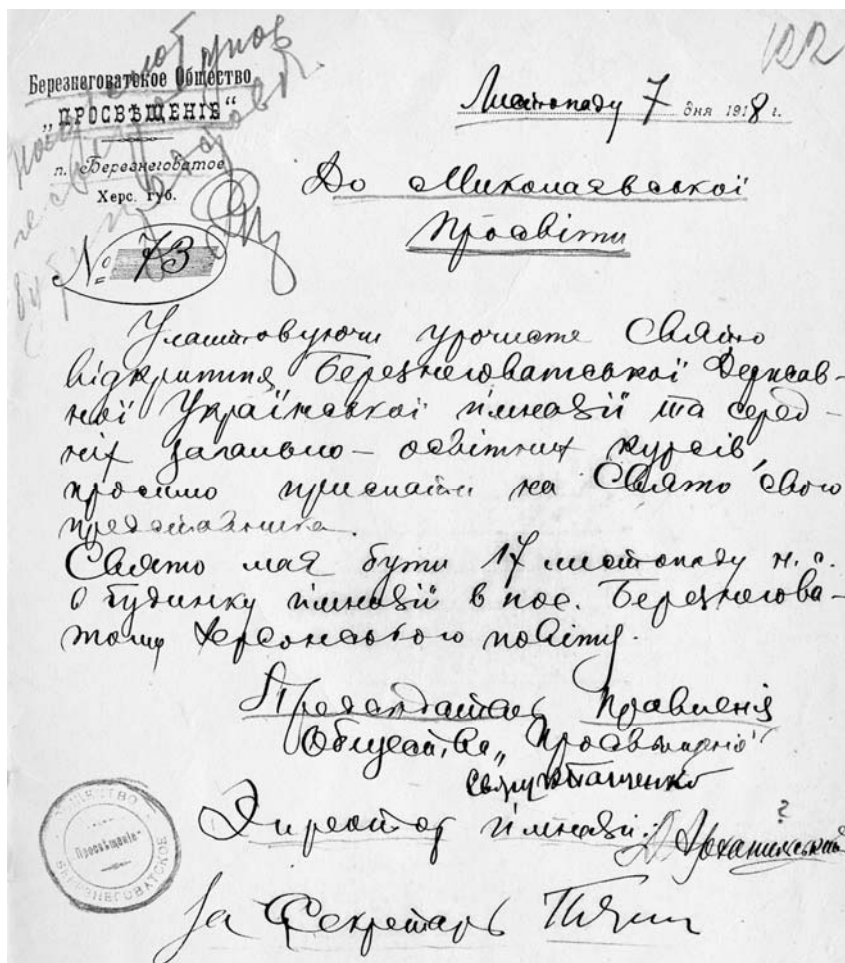 122
Березнеговатское Общество
„ПРОСВѢЩЕНІЕ“
п. Березнеговатое
Херс. губ.
№ 73
Листопаду 7 дня 1918 г.
До Миколаявської
Просвіти
Улаштовуючи урочисте Свято
відкриття Березнеговатської Державної
ної Української гімназії та серед-
ніх загально-освітних курсів,
просимо прислати на Свято свого
представника.
Свято мая бути 17 листопаду н. с.
в будинку гімназії в пос. Березнегова-
тому Херсонського повіту.
Предсѣдатель Правленія
Общества „Просвѣщеніе“
Директор гімназії:
?
За Секретарь
ОБЩЕСТВО
Просвѣщеніе
БЕРЕЗНЕГОВАТСКОЕ